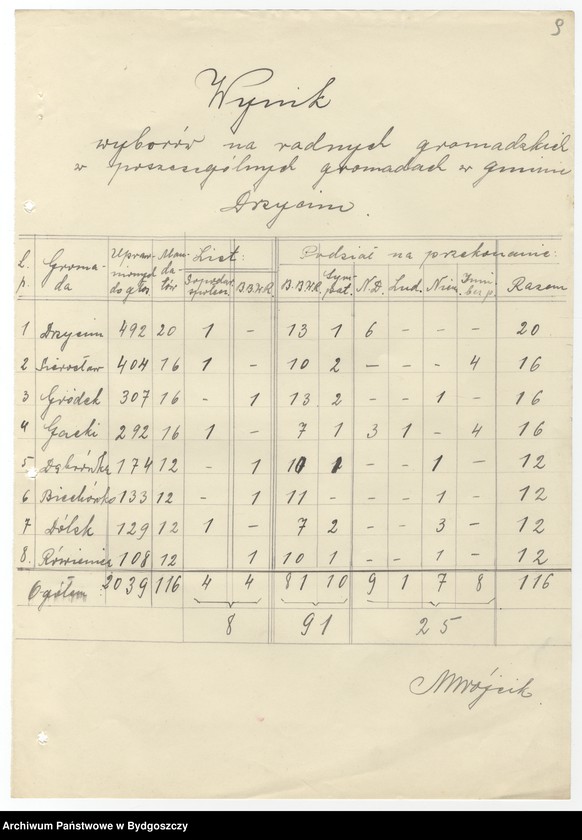 9
Wynik
wyborów na radnych gromadzkich
w poszczególnych gromadach w gminie
Drzycim.
L. p. Gromada Uprawnionych do głos. Mandatów List: Podział na przekonanie: Razem
Gospodar. społecz. B.B.W.R. B.B.W.R. Sympat. N.D. Lud. Niem. Inni bez p.
1 Drzycim 492 20 1 - 13 1 6 - - - 20
2 Sierosław 404 16 1 - 10 2 - - - 4 16
3 Gródek 307 16 - 1 13 2 - - 1 - 16
4 Gacki 292 16 1 - 7 1 3 1 - 4 16
5 Dąbrówka 174 12 - 1 10 1 - - 1 - 12
6 Biechówko 133 12 - 1 11 - - - 1 - 12
7 Dólsk 129 12 1 - 7 2 - - 3 - 12
8. Rówienica 108 12 1 10 1 - - 1 - 12
Ogółem 2039 116 4 4 81 10 9 1 7 8 116
8 91 25
MWójcik.
Archiwum Państwowe w Bydgoszczy